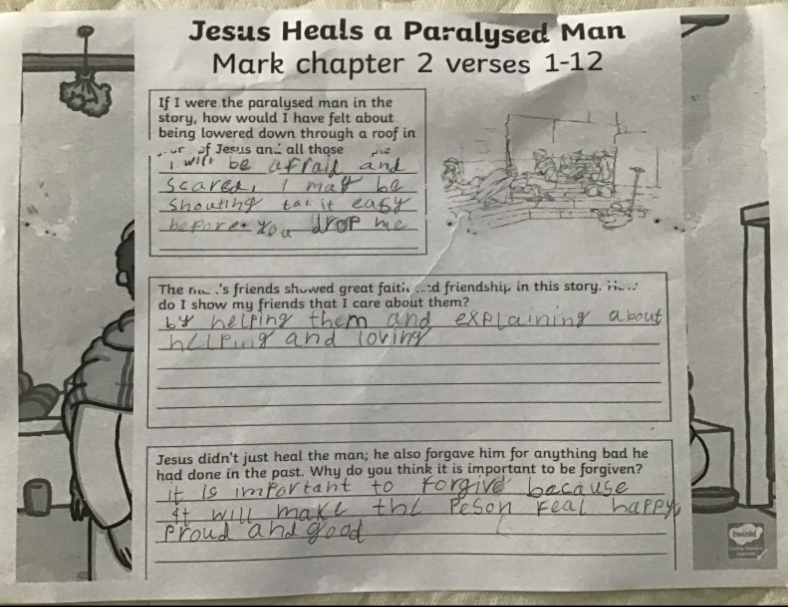 Jesus Heals a Paralysed Man
Mark chapter 2 verses 1-12
If I were the paralysed man in the
story, how would I have felt about
being lowered down through a roof in
of Jesus and all those
i will be afraid and
scared, I may be
shouting it easy
before you drop me
The 's friends showed great faith and friendship in this story. How
do I show my friends that I care about them?
by helping them and explaining about
helping and loving
Jesus didn't just heal the man; he also forgave him for anything bad he
had done in the past. Why do you think it is important to be forgiven?
it is important to forgive because
it will make the Peson feal happy,
Proud and good
twinkl